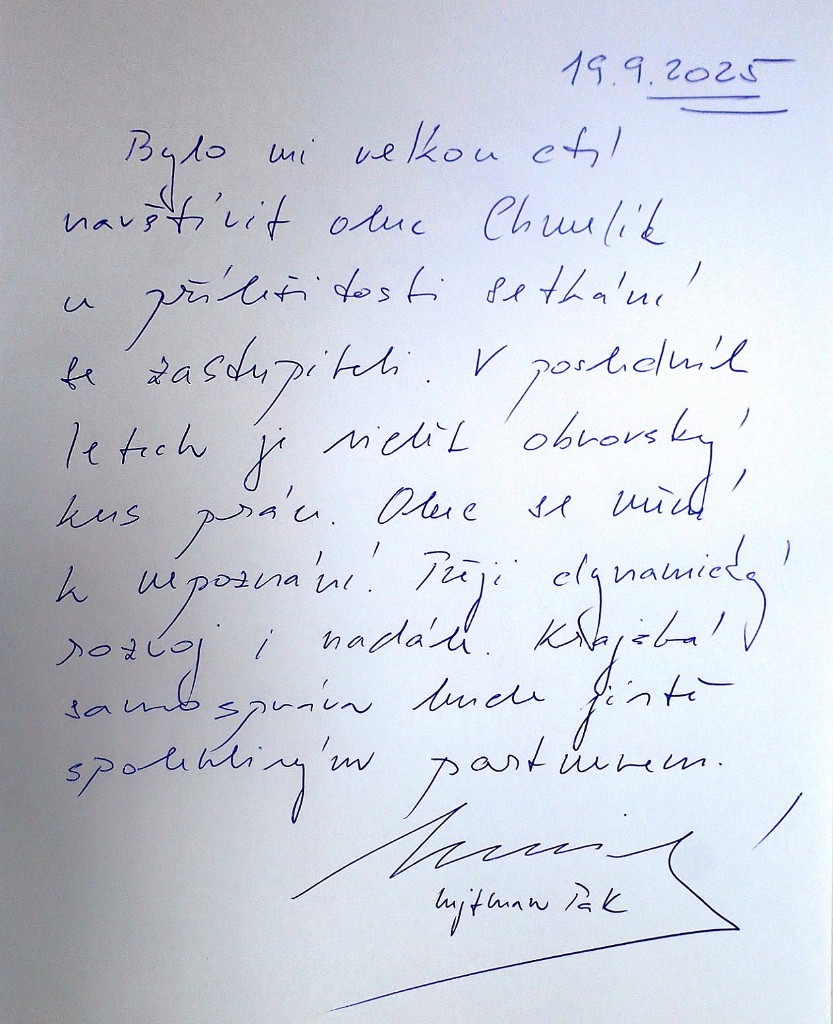 19.9.2025
Bylo mi velkou ctí
navštívit obec Chmelík
u příležitosti setkání
se zastupiteli. V posledních
letech je vidět obrovský
kus práce. Obec se mění
k nepoznání. Přeji dynamický
rozvoj i nadále. Krajská
samospráva bude jistě
spolehlivým partnerem.
hejtman Pak